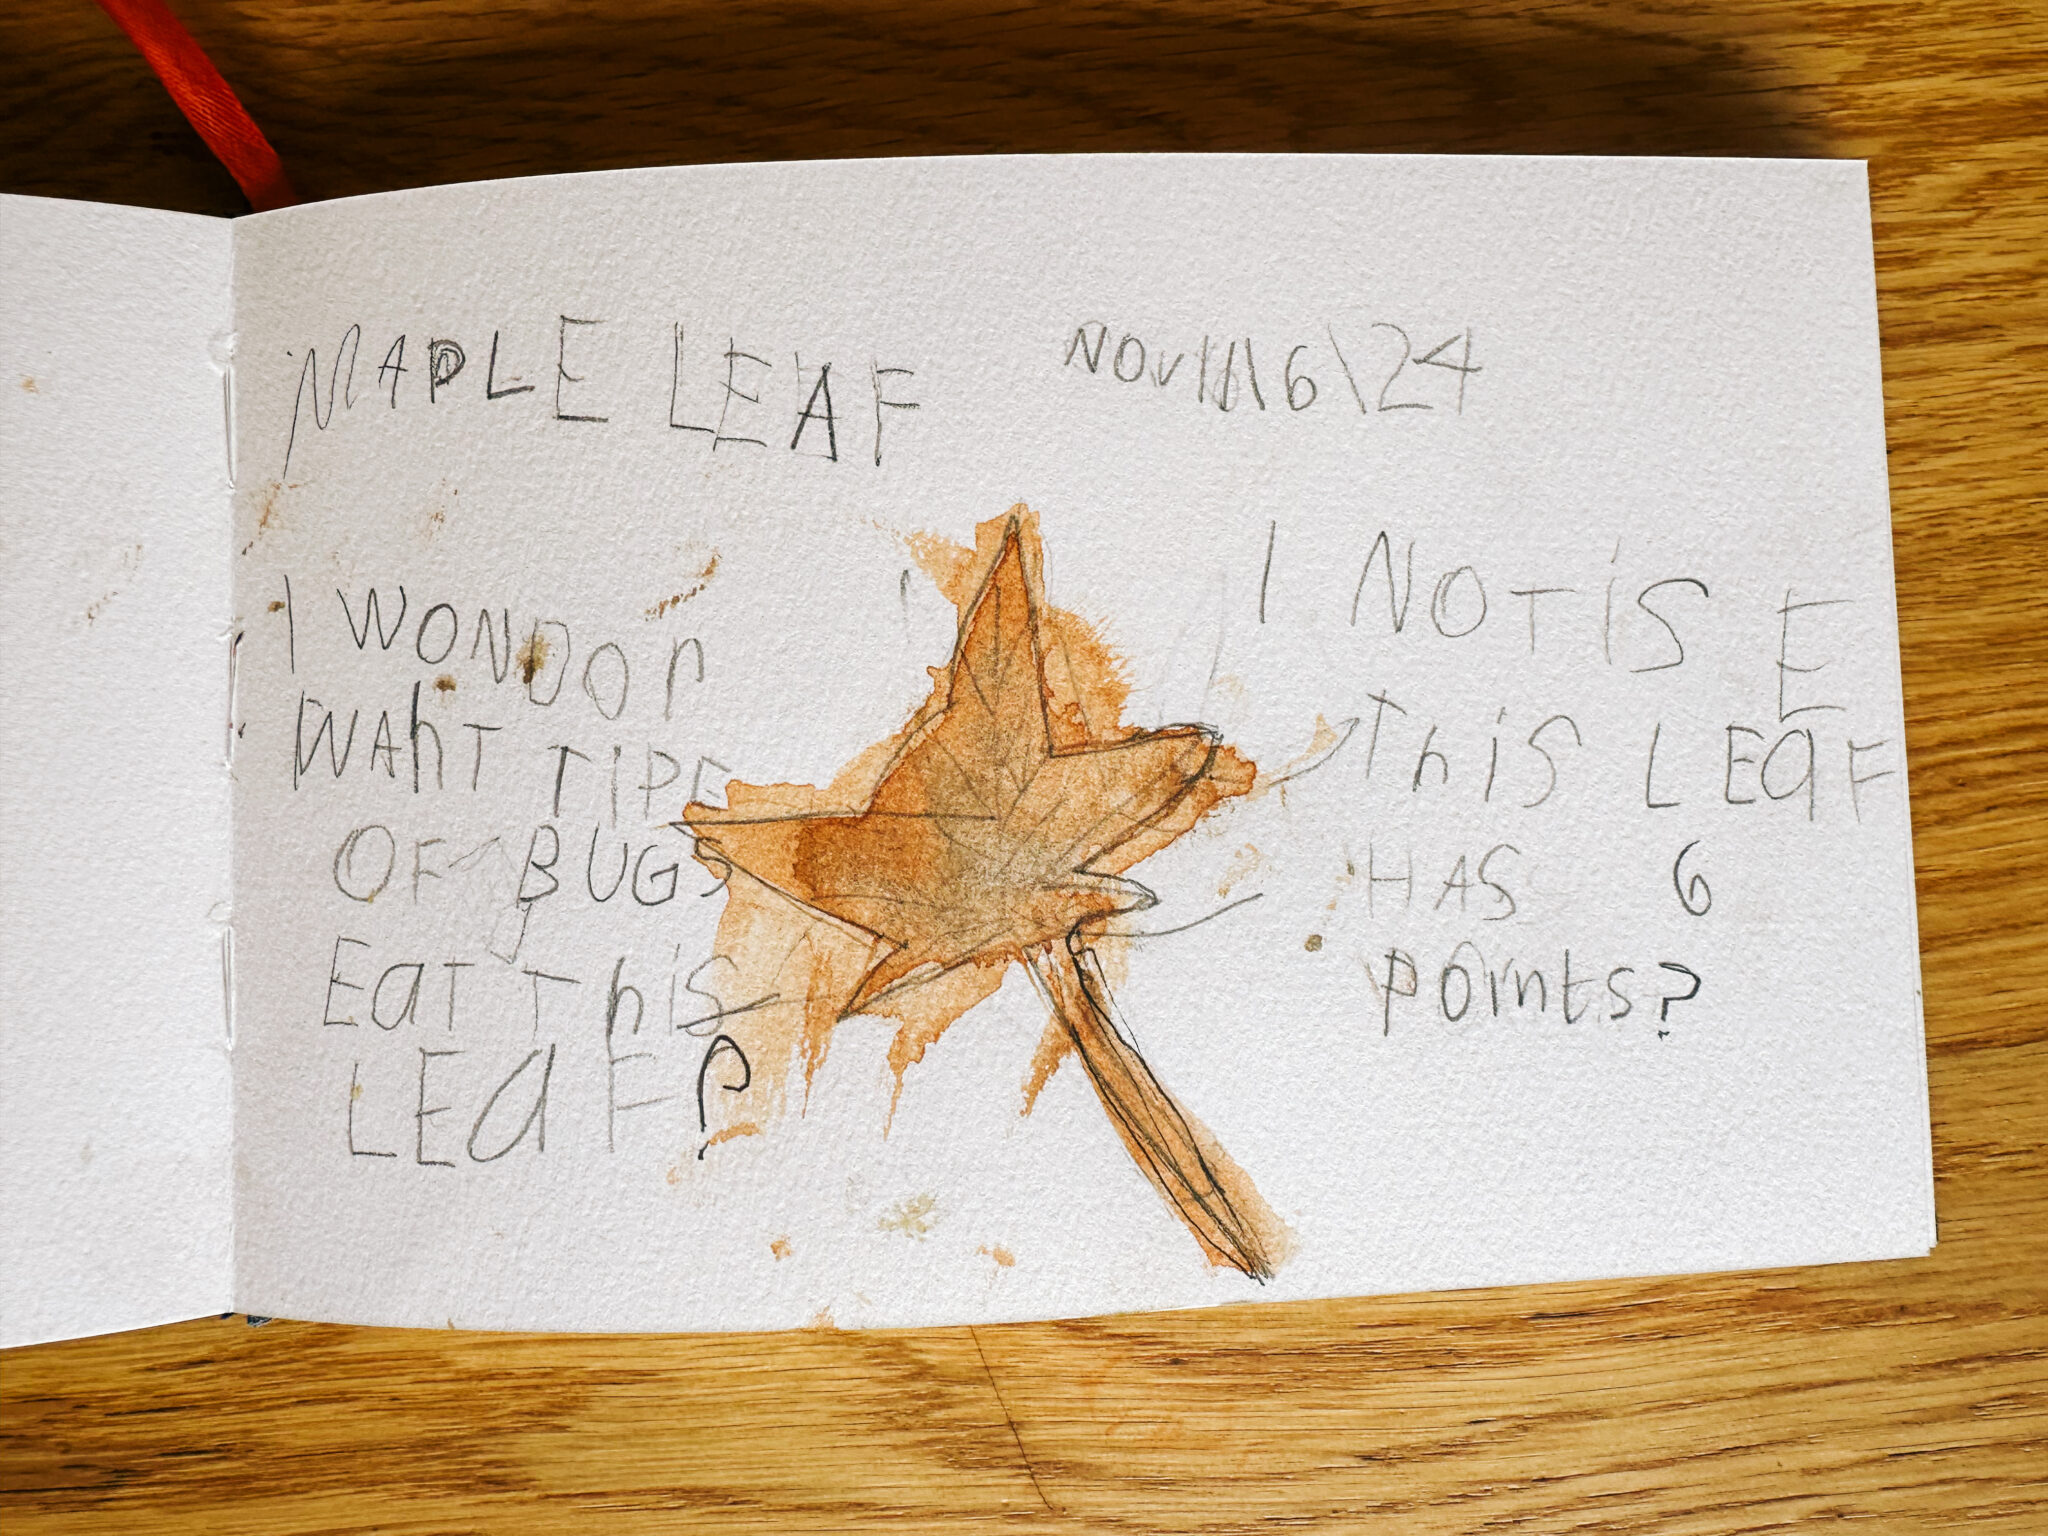 MAPLE LEAF
NOV \ 6 \ 24
I WONDOr
WAhT TIPE
OF BUGS
EaT This
LEaF?
I NOTiS E
This LEaF
HAS 6
POints?